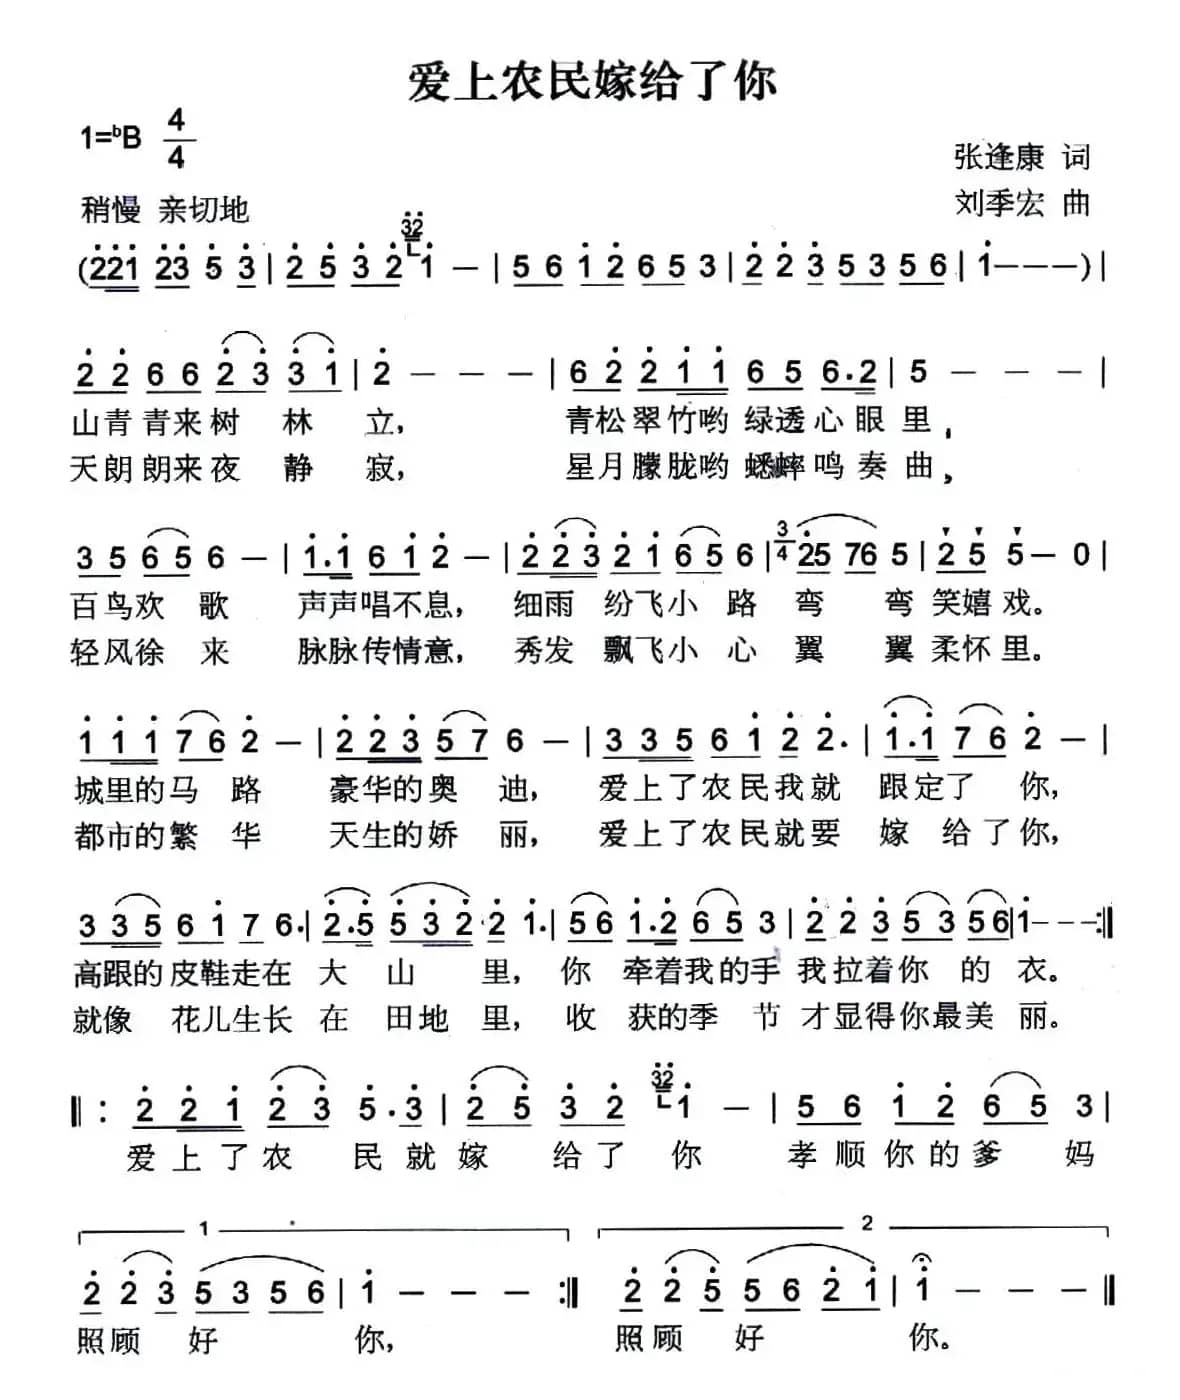 爱上农民嫁给了你
1=ᵇB 4/4
张逢康 词
稍慢 亲切地
刘季宏 曲
32
(221 23 5 3 | 2 5 3 2 1 — | 5 6 1 2 6 5 3 | 2 2 3 5 3 5 6 | 1 — — — ) |
2 2 6 6 2 3 3 1 | 2 — — — | 6 2 2 1 1 6 5 6 . 2 | 5 — — — |
山青青来树 林 立, 青松翠竹哟 绿透心眼里,
天朗朗来夜 静 寂, 星月朦胧哟 蟋蟀鸣奏曲,
3 5 6 5 6 — | 1 . 1 6 1 2 — | 2 2 3 2 1 6 5 6 | 3/4 25 76 5 | 2 5 5 — 0 |
百鸟欢 歌 声声唱不息, 细雨 纷飞小 路 弯 弯 笑嬉戏。
轻风徐 来 脉脉传情意, 秀发 飘飞小 心 翼 翼 柔怀里。
1 1 1 7 6 2 — | 2 2 3 5 7 6 — | 3 3 5 6 1 2 2 . | 1 . 1 7 6 2 — |
城里的马 路 豪华的奥 迪, 爱上了农民我就 跟定了 你,
都市的繁 华 天生的娇 丽, 爱上了农民就要 嫁 给了你,
3 3 5 6 1 7 6 . | 2 . 5 5 3 2 2 1 . | 5 6 1 . 2 6 5 3 | 2 2 3 5 3 5 6 | 1 — — — :‖
高跟的皮鞋走在 大 山 里, 你 牵着我的手 我拉着你 的 衣。
就像 花儿生长 在 田地里, 收 获的季 节 才显得你最美 丽。
32
‖: 2 2 1 2 3 5 . 3 | 2 5 3 2 1 — | 5 6 1 2 6 5 3 |
爱上了农 民就嫁 给了 你 孝顺你的爹 妈
1 2
2 2 3 5 3 5 6 | 1 — — — :‖ 2 2 5 5 6 2 1 | 1 — — — ‖
照顾 好 你, 照顾 好 你。